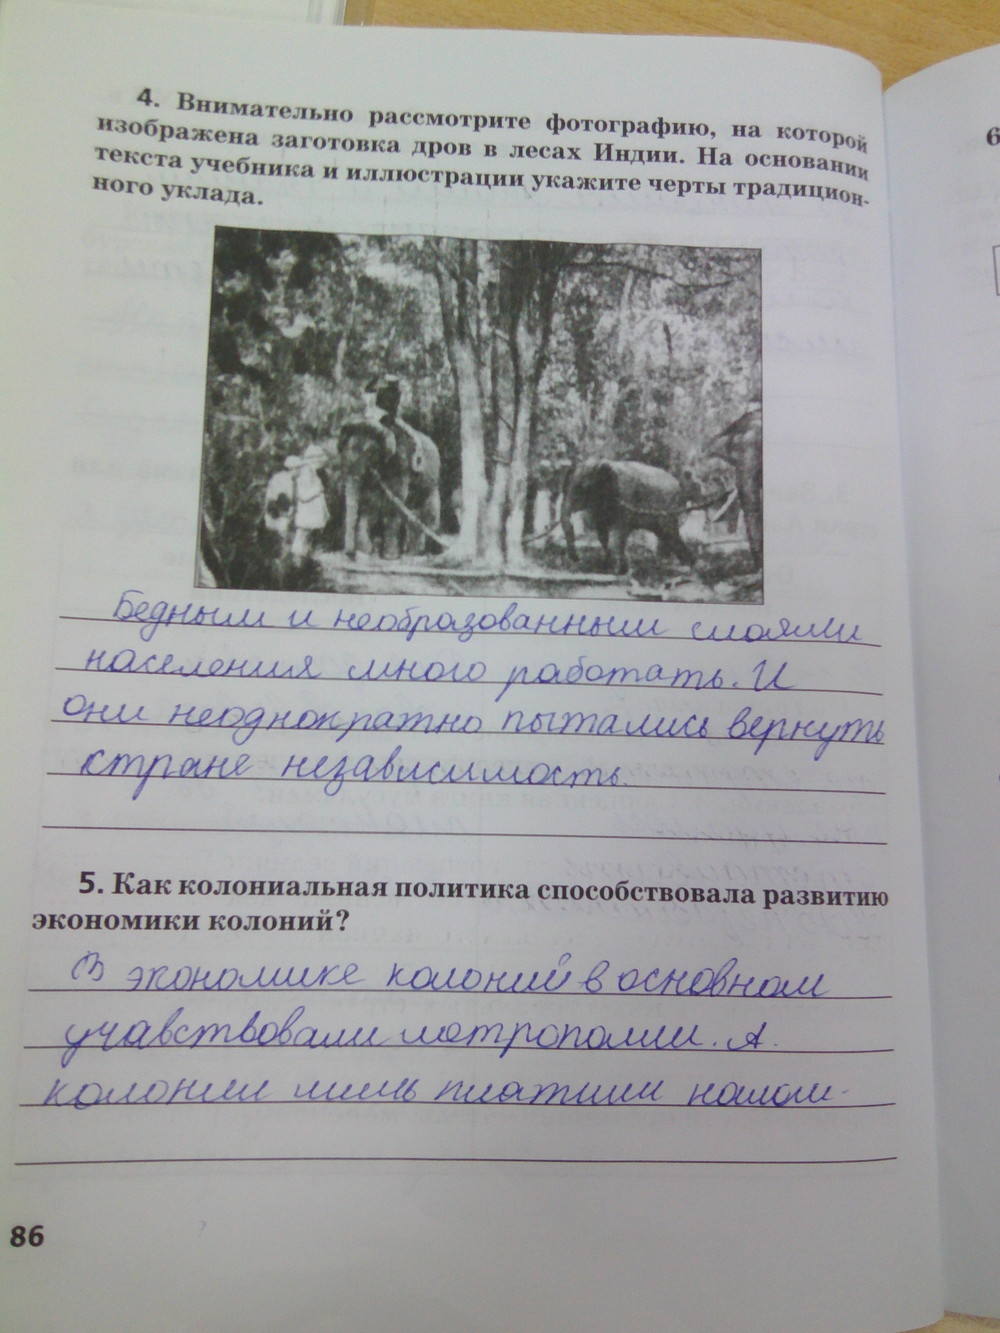 4. Внимательно рассмотрите фотографию, на которой
изображена заготовка дров в лесах Индии. На основании
текста учебника и иллюстрации укажите черты традицион-
ного уклада.
Бедным и необразованным слоями
населения много работать. И
они неоднократно пытались вернуть
стране независимость.
5. Как колониальная политика способствовала развитию
экономики колоний?
В экономике колоний в основном
учавствовали метрополии. А
колонии лишь платили налоги.
86
6